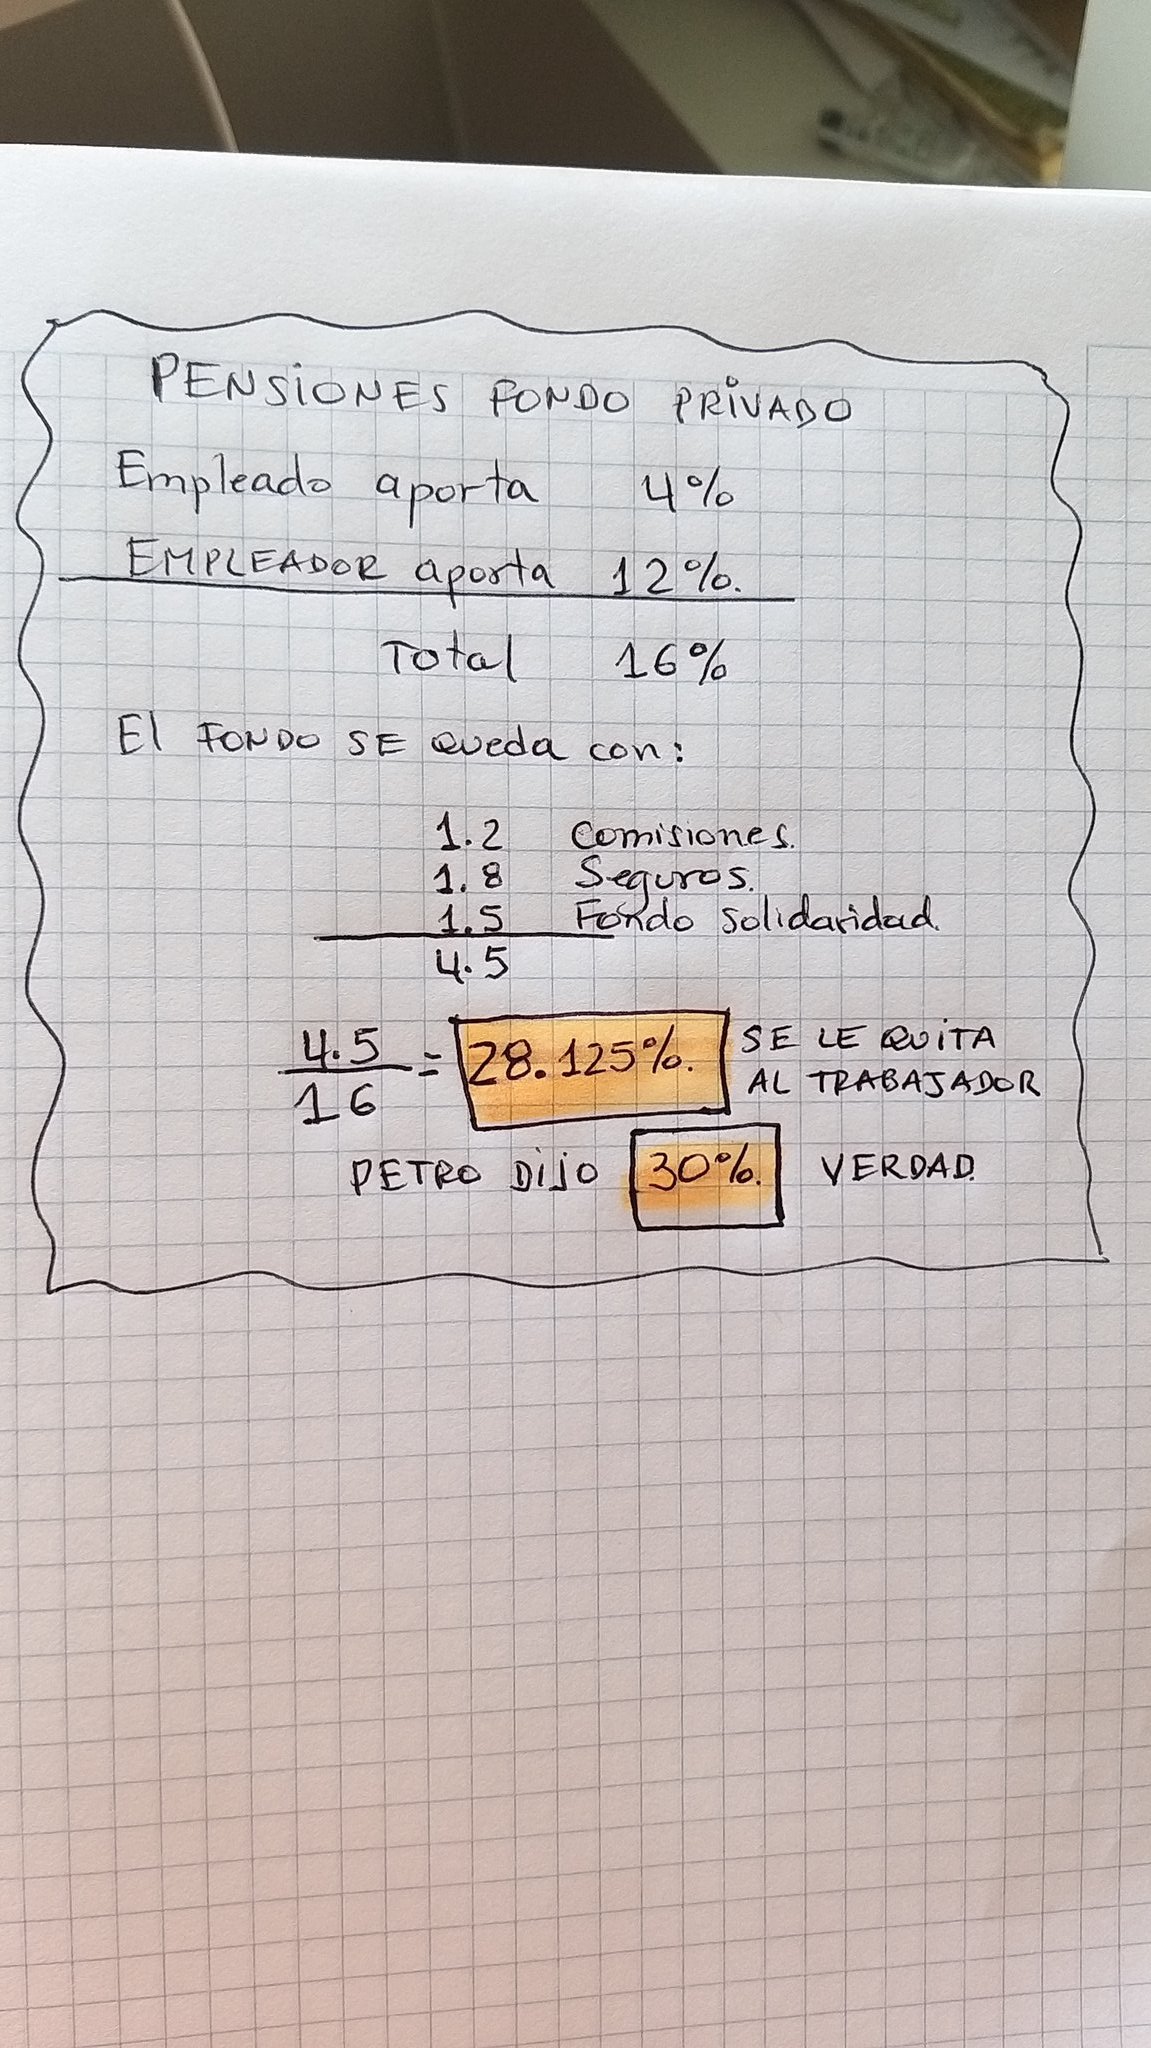 PENSIONES FONDO PRIVADO
Empleado aporta 4%
EMPLEADOR aporta 12%.
Total 16%
El FONDO SE Queda con:
1.2 Comisiones.
1.8 Seguros.
1.5 Fondo Solidaridad.
4.5
4.5
16
= 28.125%. SE LE QUITA
AL TRABAJADOR
PETRO DIJO 30%. VERDAD.